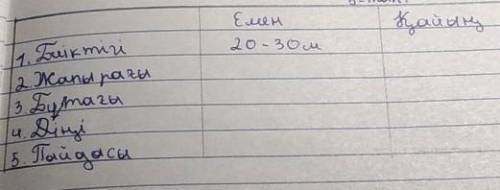 Емен Қайың
1. Биіктігі 20-30м
2. Жапырағы
3. Бұтағы
4. Діңі
5. Пайдасы